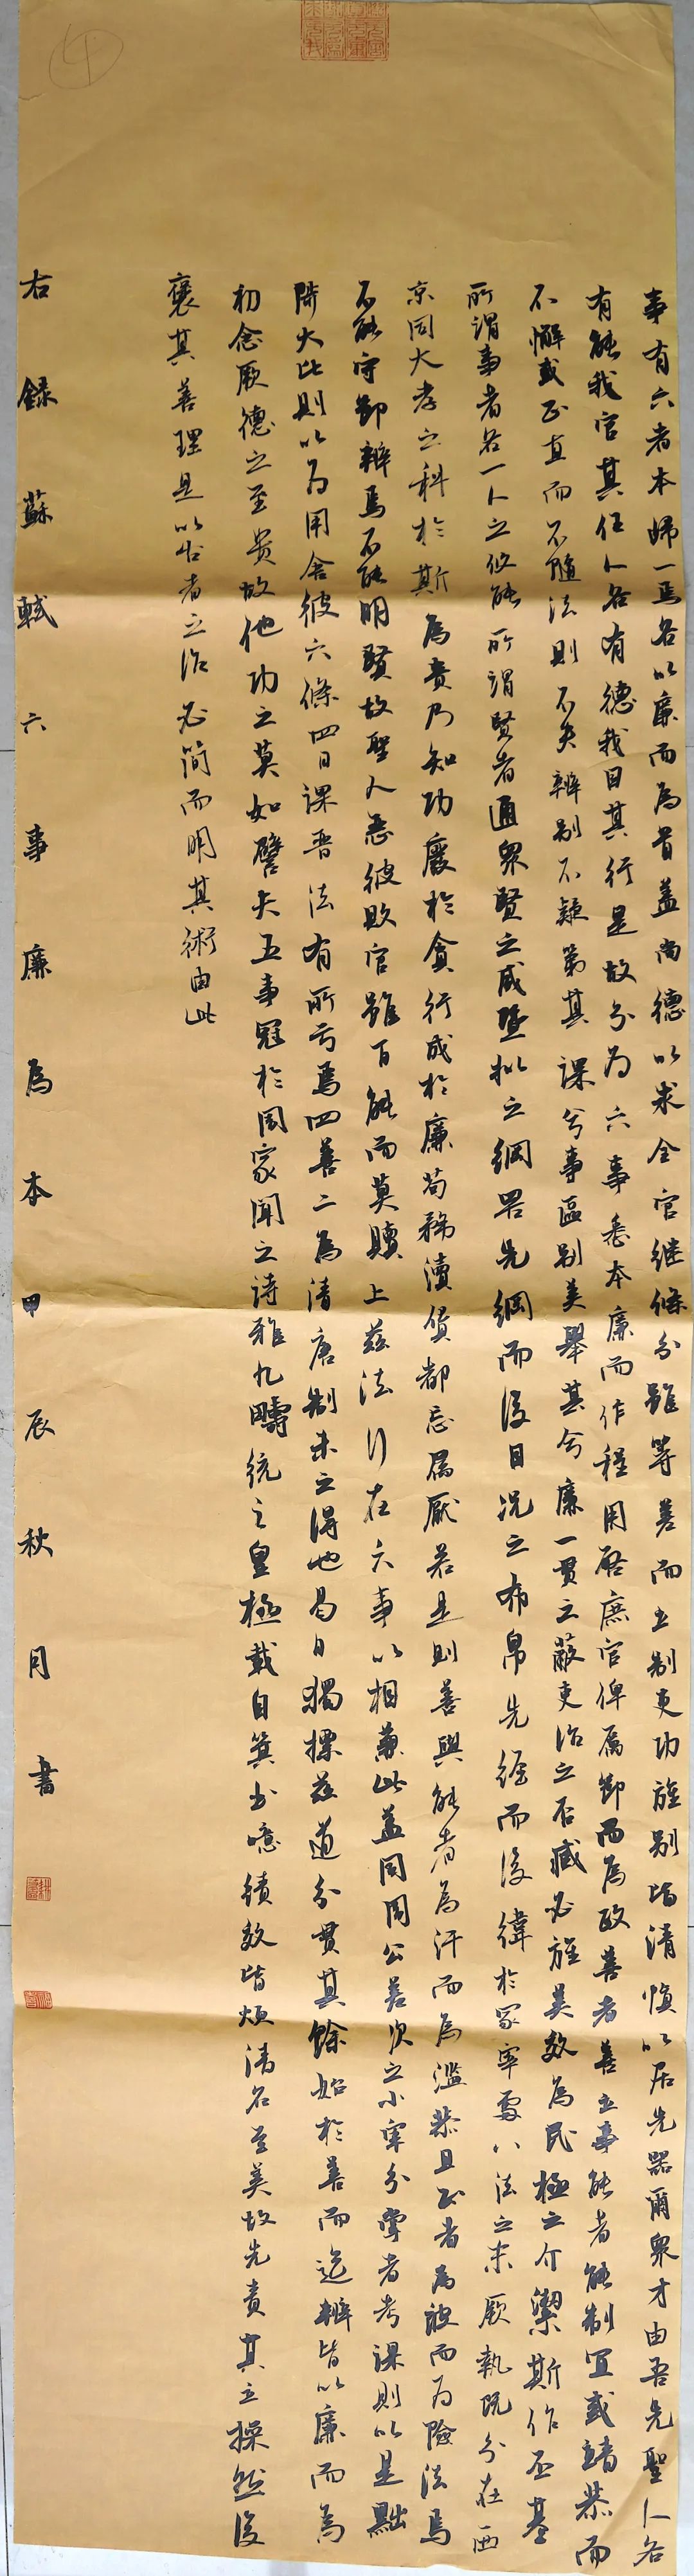 事有六者本歸一焉各以廉而為首蓋尚德以求全官繼條分雖等差而立制吏功旌別皆清慎以居先器爾眾才由吾先聖人各
有能我官其任人各有德我目其行是故分為六事悉本廉而作程用啓庶官俾厲節而為政善者善立事能者能制宜或靖恭而
不懈或正直而不隨法則不失辨別不疑第其課兮事區別美舉其兮廉一貫之蔽吏治之否臧必旌美效為民極之介潔斯作丕基
所謂事者各一人之攸能所謂賢者通眾賢之咸暨擬之網罟先綱而後目況之布帛先經而後緯於冢宰處八法之末厥執既分在西
京同大孝之科於斯為貴乃知功廢於貪行成於廉苟務瀆貨都忘屬厭若是則善與能者為汙而為濫恭且正者為詖而為險法焉
不能守節辨焉不能明賢故聖人惡彼敗官雖百能而莫贖上茲法行在六事以相兼此蓋同周公差次之小宰分掌者考課則以是黜
陟大比則以為用舍彼六條四曰課晉法有所虧焉四善二為清唐制未之得也曷曰獨摽茲道分貫其餘始於善而迄辨皆以廉而為
初念厥德之至貴故他功之莫如譬夫五事冠於周家聞之詩雅九疇統之皇極載自箕書噫績效皆煩清名至美故先責其立操然後
褒其善理是以古者之治必簡而明其術由此
右錄蘇軾六事廉為本甲辰秋月書